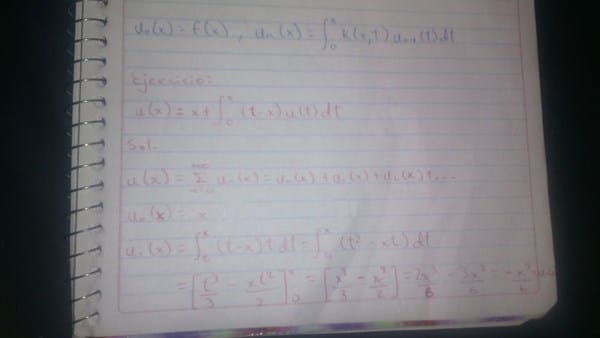 u₀(x) = f(x), uₙ(x) = ∫₀ˣ K(x,t) uₙ₋₁(t) dt
Ejercicio:
u(x) = x + ∫₀ˣ (t-x) u(t) dt
Sol.
u(x) = Σ uₙ(x) = u₀(x) + u₁(x) + u₂(x) + ...
u₀(x) = x
u₁(x) = ∫₀ˣ (t-x) t dt = ∫₀ˣ (t² - xt) dt
= [t³/3 - xt²/2]₀ˣ = [x³/3 - x³/2] = 2x³/6 - 3x³/6 = -x³/6